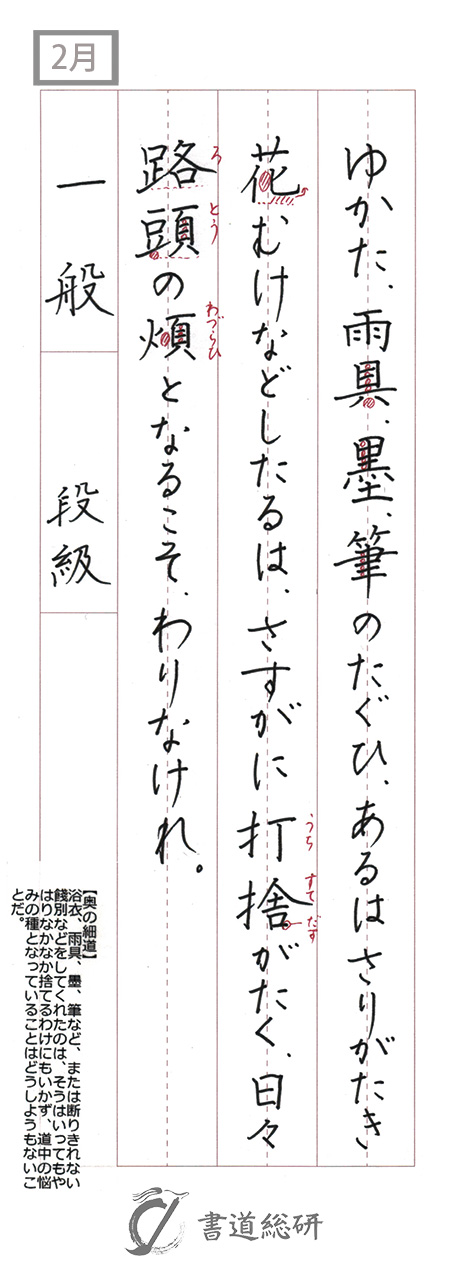 2月
ゆかた、雨具、墨、筆のたぐひ、あるはさりがたき
花むけなどしたるは、さすがに打捨がたく、日々
うち すて
路頭の煩となるこそ、わりなけれ。
ろ とう わづらひ
一般
段級
【奥の細道】
浴衣、雨具、墨、筆など、または断りきれない
餞別などをしてくれたのは、そうはいってもや
はりなかなか捨てるわけにもいかず、道中の悩
みの種となっていることはどうしようもないこ
とだ。
書道総研